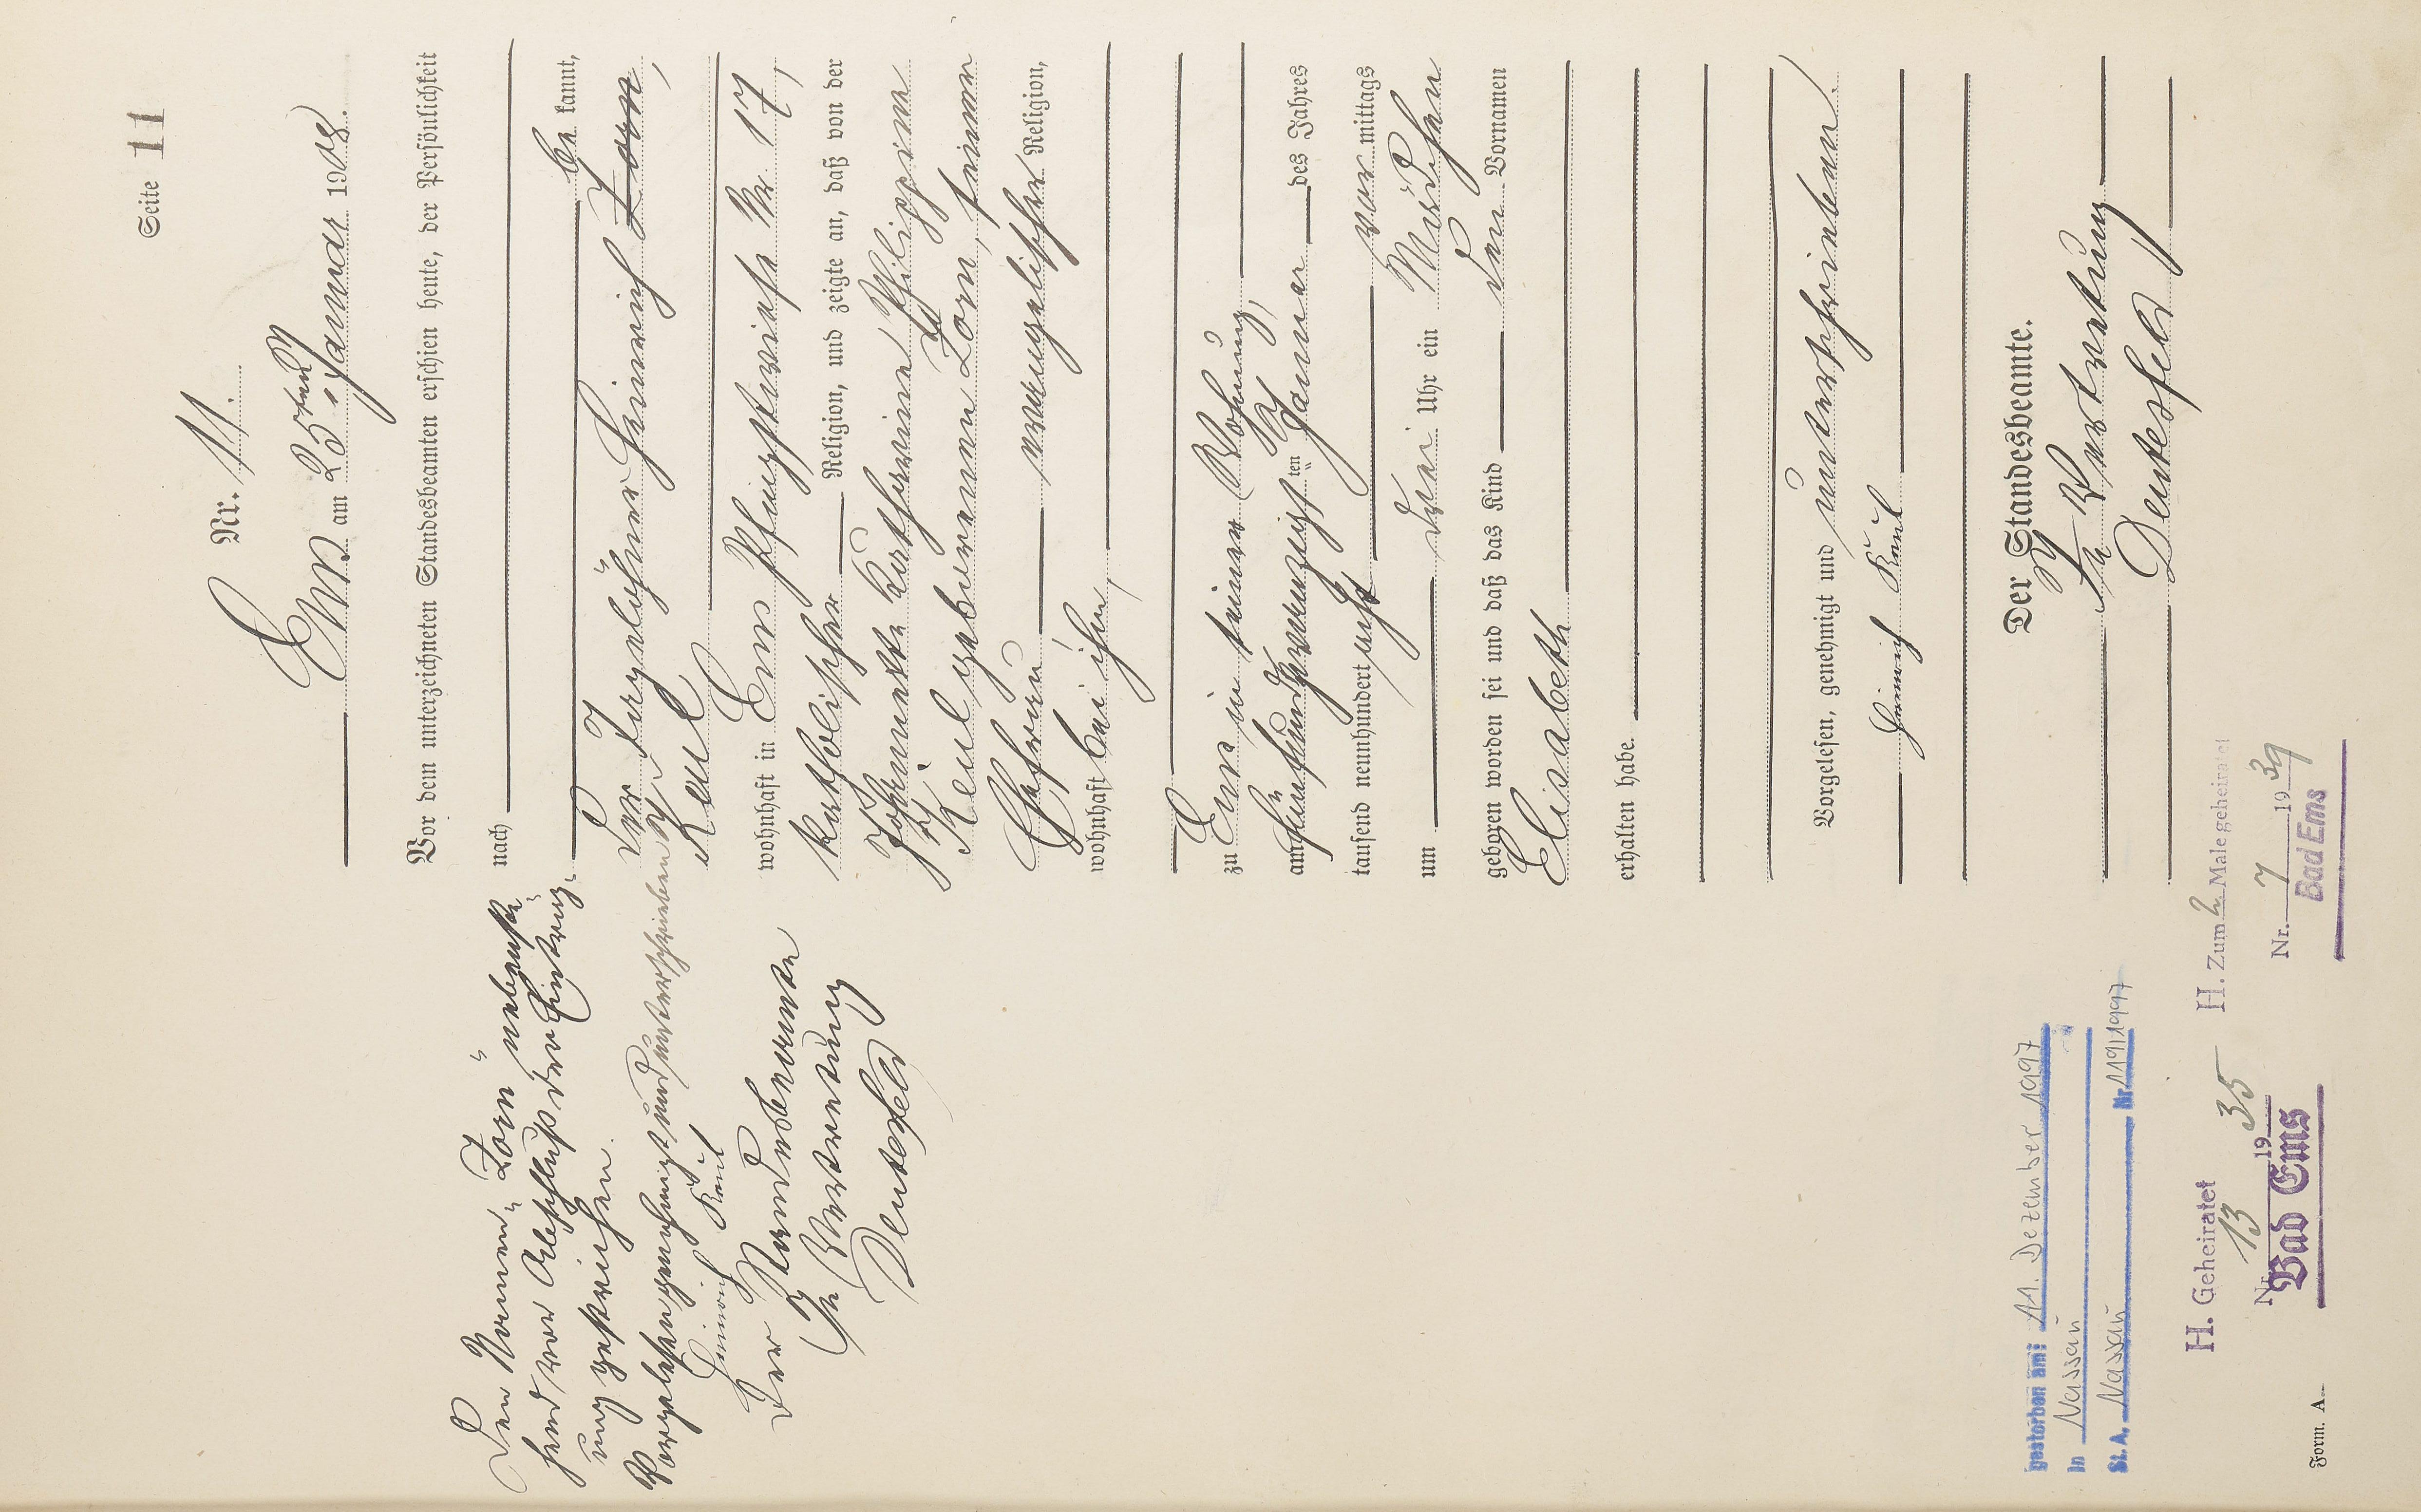 Seite 11
Nr. 11.
Ems am 25ten Januar 1908.
Vor dem unterzeichneten Standesbeamten erschien heute, der Persönlichkeit
nach
be kannt,
der Tagelöhner Heinrich Zorn,
Keul
wohnhaft in Ems Pfingstwiese Nr. 17,
katholischer Religion, und zeigte an, daß von der
Johannette Katharine Philippine
Keul geborenen Zorn, seiner
Ehefrau evangelischer Religion,
wohnhaft bei ihm,
zu Ems in seiner Wohnung,
am fünfundzwanzigsten Januar des Jahres
tausend neunhundert acht vor mittags
um drei Uhr ein Mädchen
geboren worden sei und daß das Kind den Vornamen
Elisabeth
erhalten habe.
Vorgelesen, genehmigt und unterschrieben.
Heinrich Keul
Der Standesbeamte.
In Vertretung
Deutesfeld
Den Namen „Zorn" nebenste-
hend vor Abschluß der Eintrag-
ung gestrichen.
Vorgelesen genehmigt und unterschrieben
Heinrich Keul
Der Standesbeamte
In Vertretung
Deutesfeld
gestorben am: 11. Dezember 1997
in Nassau
St.A. Nassau Nr. 119/1997
H. Geheiratet
Nr. 13 1935
Bad Ems
H. Zum 2. Male geheiratet
Nr. 7 1939
Bad Ems
Form. A.